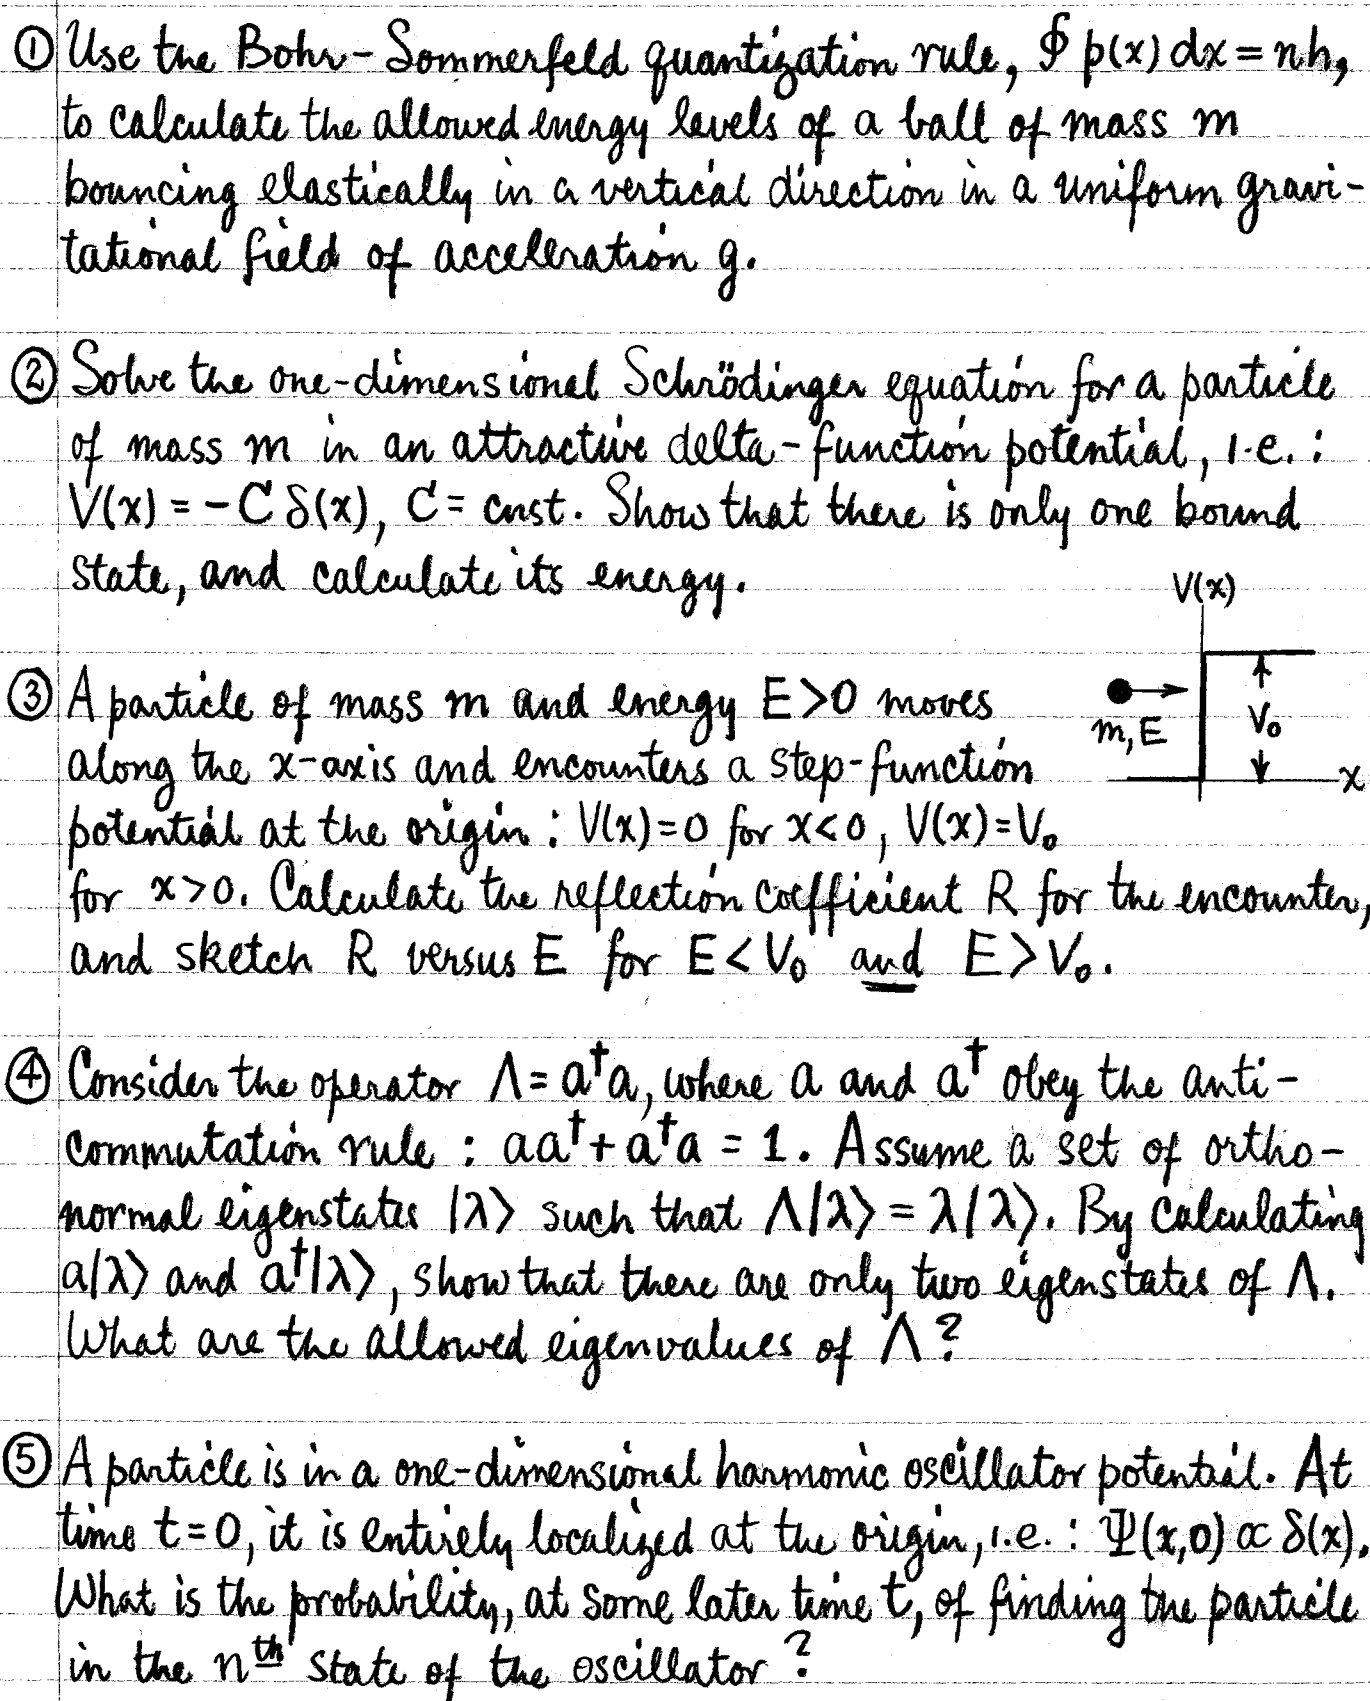 ① Use the Bohr-Sommerfeld quantization rule, ∮ p(x) dx = nh,
to calculate the allowed energy levels of a ball of mass m
bouncing elastically in a vertical direction in a uniform gravi-
tational field of acceleration g.
② Solve the one-dimensional Schrödinger equation for a particle
of mass m in an attractive delta-function potential, i.e. :
V(x) = -C δ(x), C = cnst. Show that there is only one bound
state, and calculate its energy.
V(x)
③ A particle of mass m and energy E>0 moves
m, E
V₀
along the x-axis and encounters a step-function
x
potential at the origin : V(x)=0 for x<0, V(x)=V₀
for x>0. Calculate the reflection coefficient R for the encounter,
and sketch R versus E for E<V₀ and E>V₀.
④ Consider the operator Λ = a†a, where a and a† obey the anti-
commutation rule : aa† + a†a = 1. Assume a set of ortho-
normal eigenstates |λ⟩ such that Λ|λ⟩ = λ|λ⟩. By calculating
a|λ⟩ and a†|λ⟩, show that there are only two eigenstates of Λ.
What are the allowed eigenvalues of Λ?
⑤ A particle is in a one-dimensional harmonic oscillator potential. At
time t=0, it is entirely localized at the origin, i.e. : Ψ(x,0) ∝ δ(x).
What is the probability, at some later time t, of finding the particle
in the nth state of the oscillator?